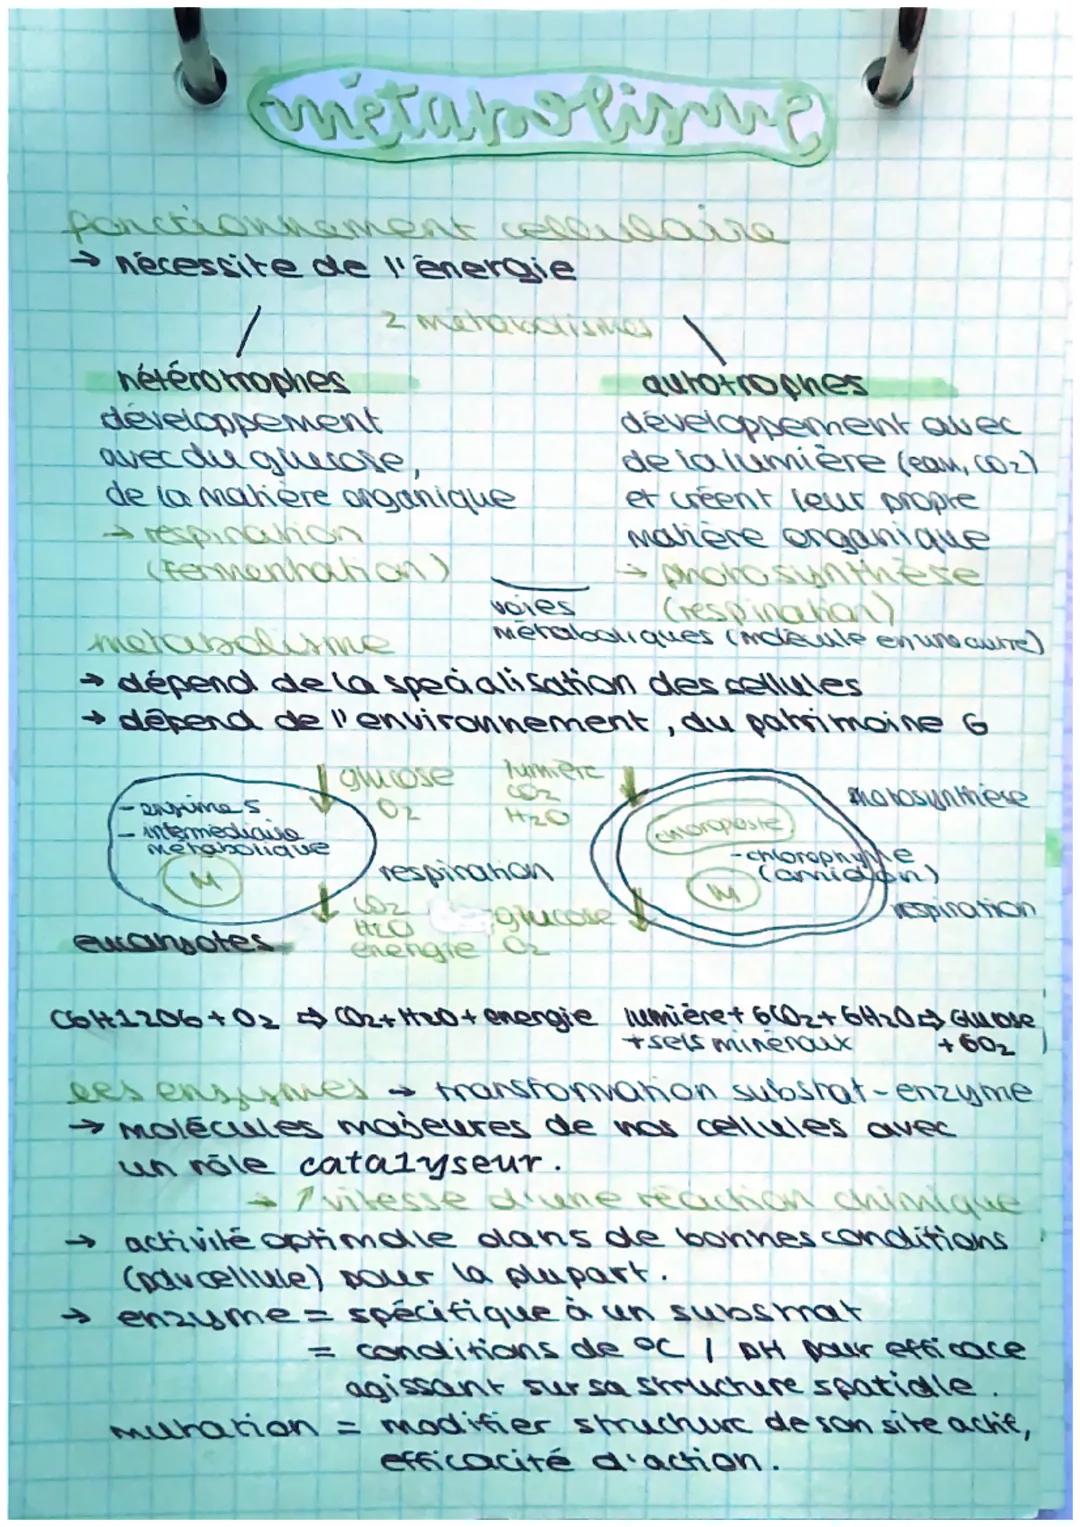 métabolisme
fonctionnement cellulaire
→ nécessite de l'énergie
2 métabolismes
hétérotrophes
développement
avec du glucose,
de la matière organique
→ respiration
(fermentation)
autotrophes
développement avec
de la lumière (eau, CO2)
et créent leur propre
matière organique
→ photosynthèse
(respiration)
voies
métaboliques (molécule en une autre)
métabolisme
→ dépend de la spécialisation des cellules
→ dépend de l'environnement, du patrimoine G
- enzimes
- intermédiaire
métabolique
M
glucose
O2
respiration
CO2
H2O
énergie
eucaryotes
lumière
CO2
H2O
glucose
O2
chloroplaste
- chlorophylle
(amidon)
M
photosynthèse
respiration
C6H12O6 + O2 ⇒ CO2 + H2O + énergie
lumière + 6CO2 + 6H2O ⇒ Glucose
+ sels minéraux + 6O2
les enzymes → transformation substrat-enzyme
→ molécules majeures de nos cellules avec
un rôle catalyseur.
→ ↑ vitesse d'une réaction chimique
→ activité optimale dans de bonnes conditions
(par cellule) pour la plupart.
→ enzyme = spécifique à un substrat
= conditions de °C / pH pour efficace
agissant sur sa structure spatiale.
mutation = modifier structure de son site actif,
efficacité d'action.